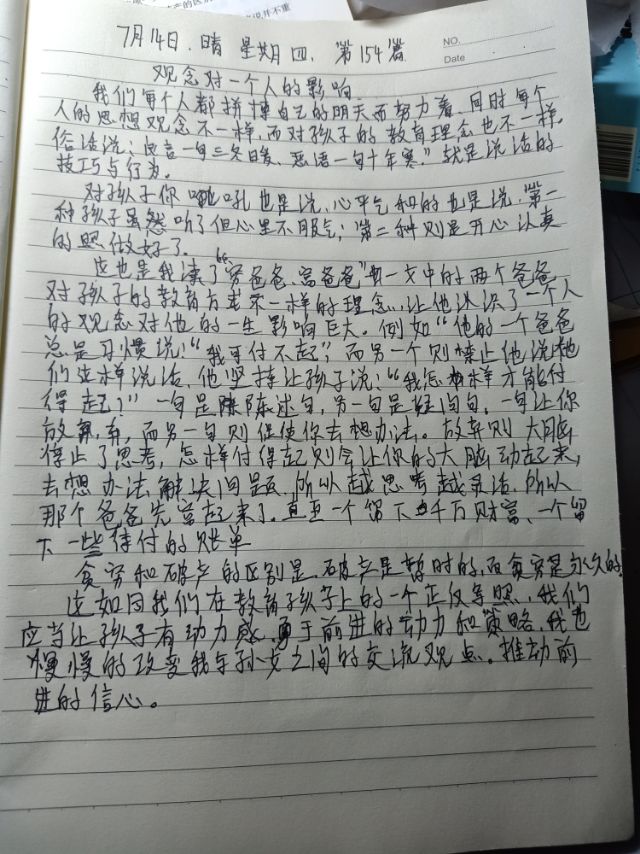 7月14日.晴 星期四. 第154篇
NO.
Date
观念对一个人的影响
我们每个人都拼搏自己的明天而努力着.同时每个
人的思想观念不一样,而对孩子的教育理念也不一样,
俗话说:良言一句三冬暖、恶语一句十年寒"就是说话的
技巧与行为。
对孩子你 吼也是说,心平气和的也是说,第一
种孩子虽然听了但心里不服气;第二种则是开心认真
的照做好了.
应也是我读了"穷爸爸、富爸爸" 一文中的两个爸爸
对孩子的教育方式不一样的理念,让他认识了一个人
的观念对他的一生影响巨大。例如"他的一个爸爸
总是习惯说:"我可付不起"而另一个则禁止他说他
们这样说话,他坚持让孩子说:"我怎样才能付
得起?"一句是陈述句,另一句是疑问句.一句让你
放弃,而另一句则促使你去想办法。放弃则大脑
停止了思考,怎样付得起则会让你的大脑动起来,
去想办法解决问题,所以越思考越灵活,所以
那个爸爸先富起来了.直至一个留下千万财富、一个留
下一些待付的账单
贫穷和破产的区别是.破产是暂时的,而贫穷是永久的.
这如同我们在教育孩子上的一个正仪等照,我们
应当让孩子有动力感,勇于前进的动力和策略,我也
慢慢的改变我与孙女之间的交流观点。推动前
进的信心。